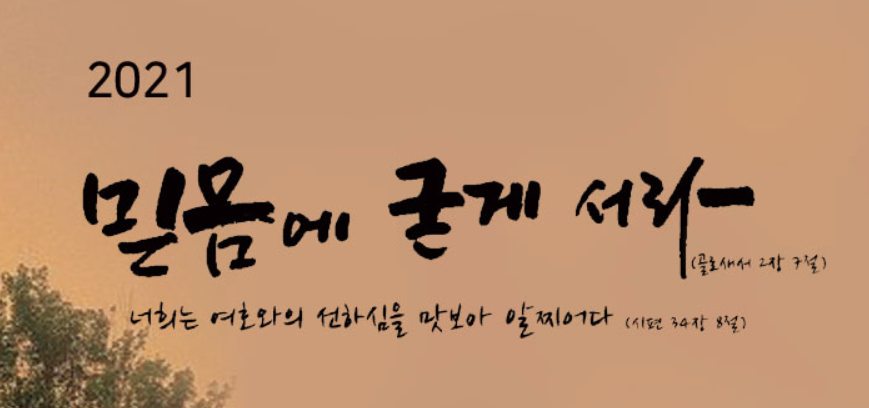 2021
믿몸에 굳게 서라
(골로새서 2장 7절)
너희는 여호와의 선하심을 맛보아 알찌어다 (시편 34장 8절)